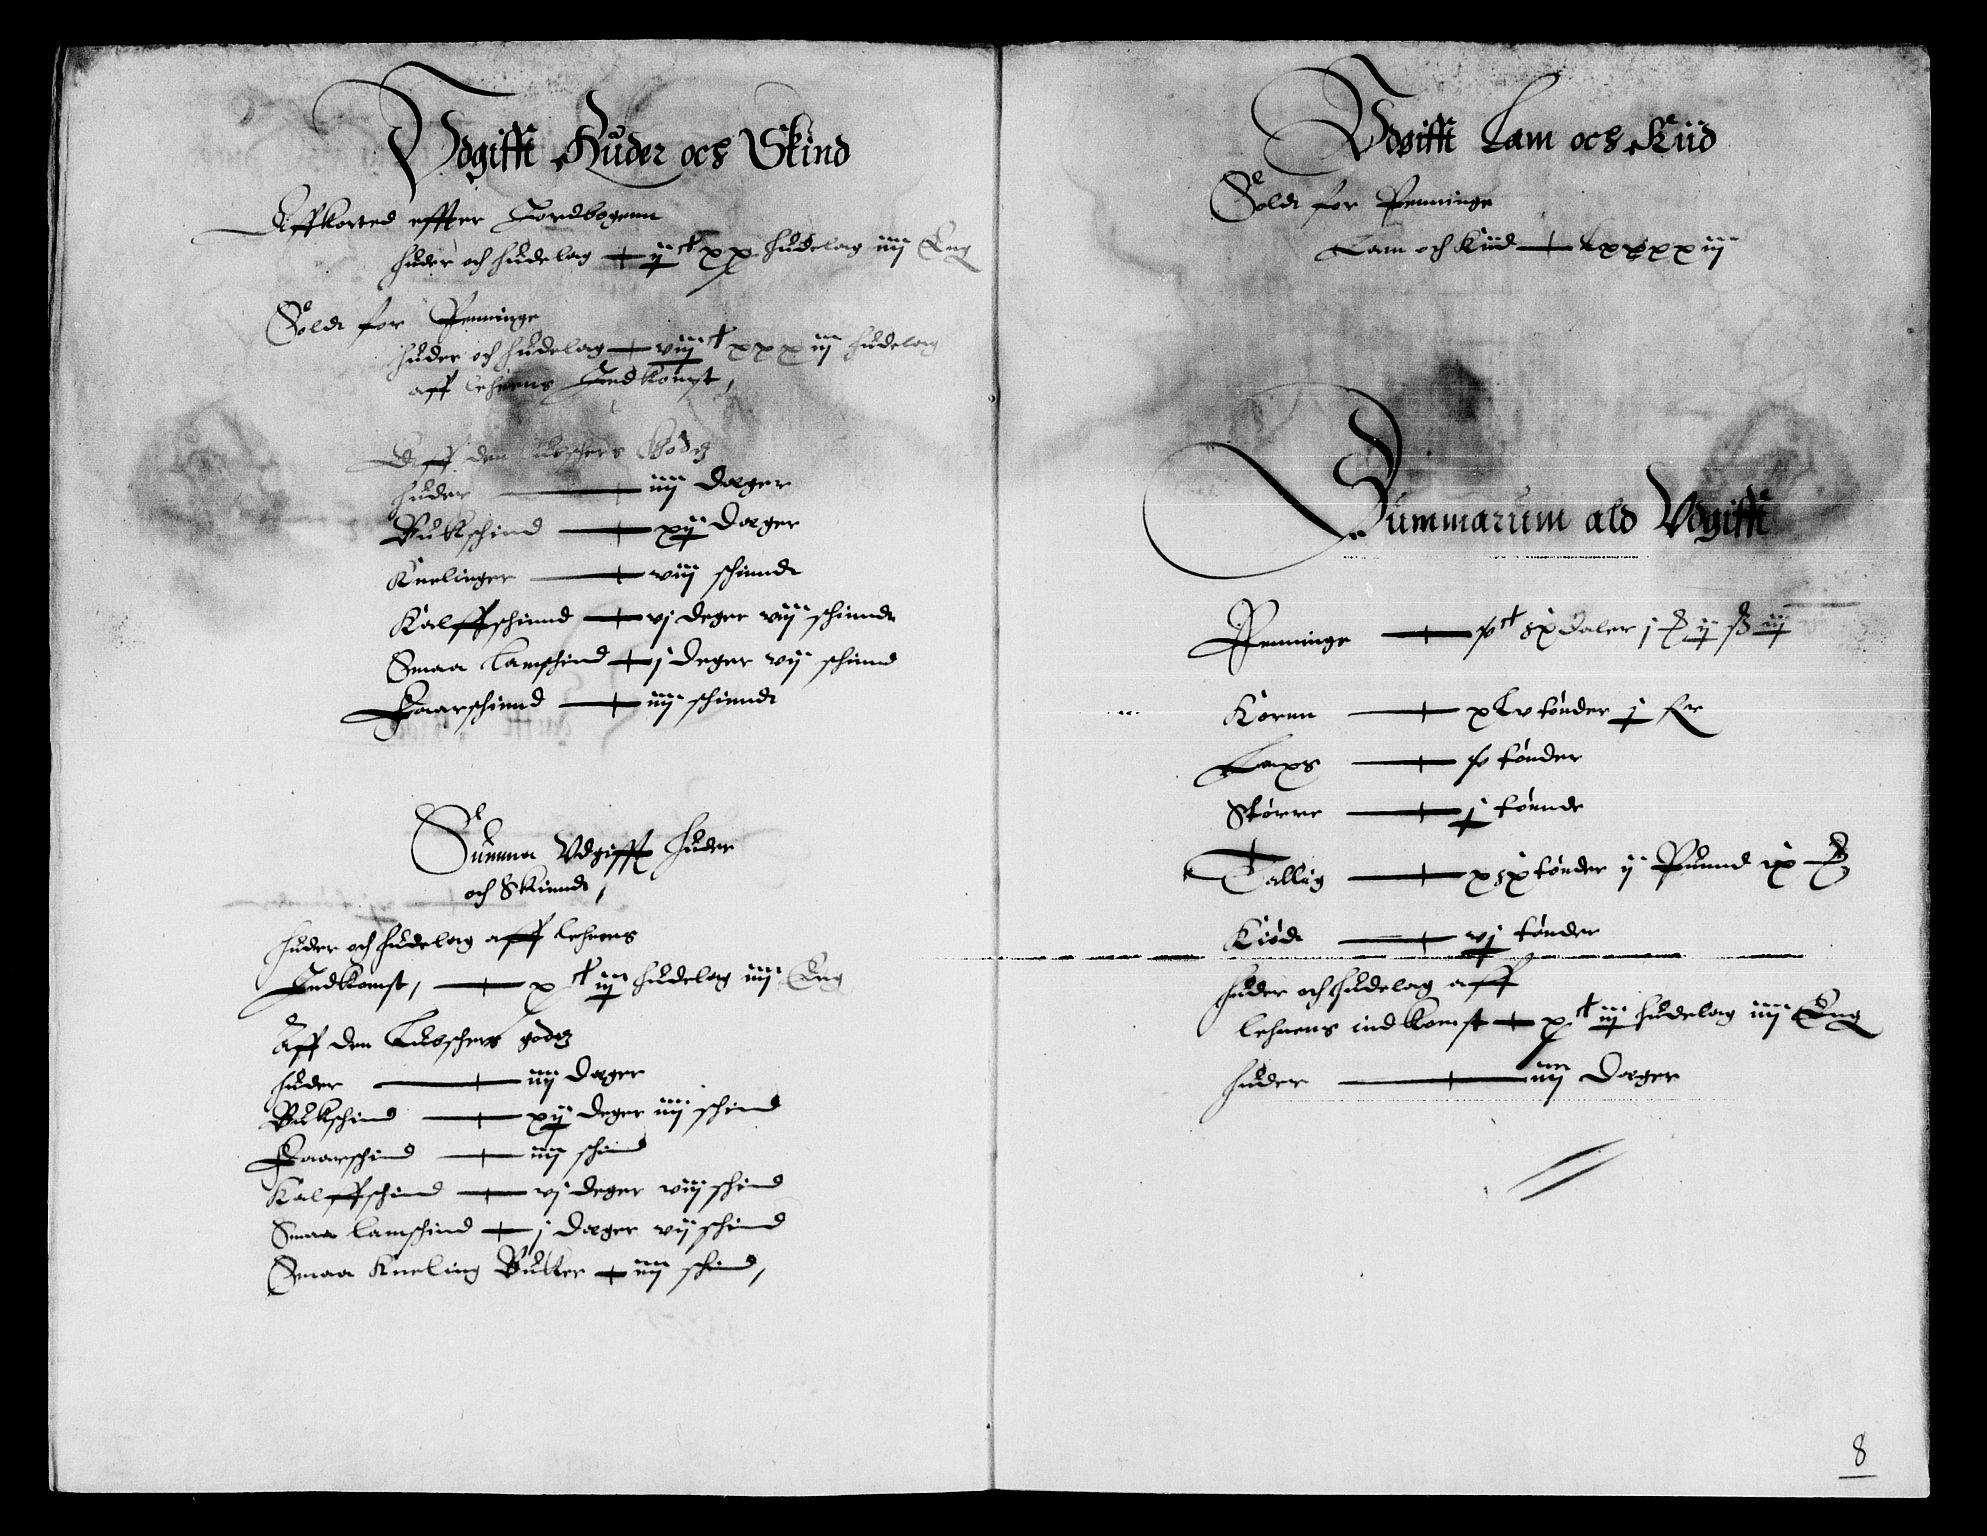 Vdgifft Huder och Skind
Affkorted effter Jordbogenn
huder och hudelag + ijc xx hudelag iiij Eng
Sold for Penninge
huder och hudelag + viijc xxxiij hudelag
aff lehnens Indkomst,
Aff den Lubschers Godz
huder + iiij Dæger
Bukschind + xij Dæger
Knelinger + viij schinnd
Kalffschinnd + vj deger viij schinnd
Smaa lamschind + j deger vij schinnd
Faarschinnd + iiij schinnd
Summa Vdgifft huder
och Skinnd,
huder och hudelag aff lehnens
Indkomst, + xc iij hudelag iiij Eng
Aff den Lubschers godz
huder + iiij Dæger
Bukschind + xij deger iiij schind
Faarschind + iiij schind
Kalffschind + vj deger viij schind
Smaa lamschind + j Dæger vij schind
Smaa Kneling Bukker + iiij schind,
Vdgifft Lam och Kiid
Sold for Penninge
Lam och Kiid + Lxxxxiij
Summarum ald Vdgifft
Penninge daler j ij ß iij
Kornn + xLv tønder j
Laxs + tønder
Større + j tønnde
Tallig + tønder ij Punnd ix
Kiød + vj tønder
huder och hudelag aff
lehnens indkomst + xc iij hudelag iiij Eng
huder + iiij Dæger
8